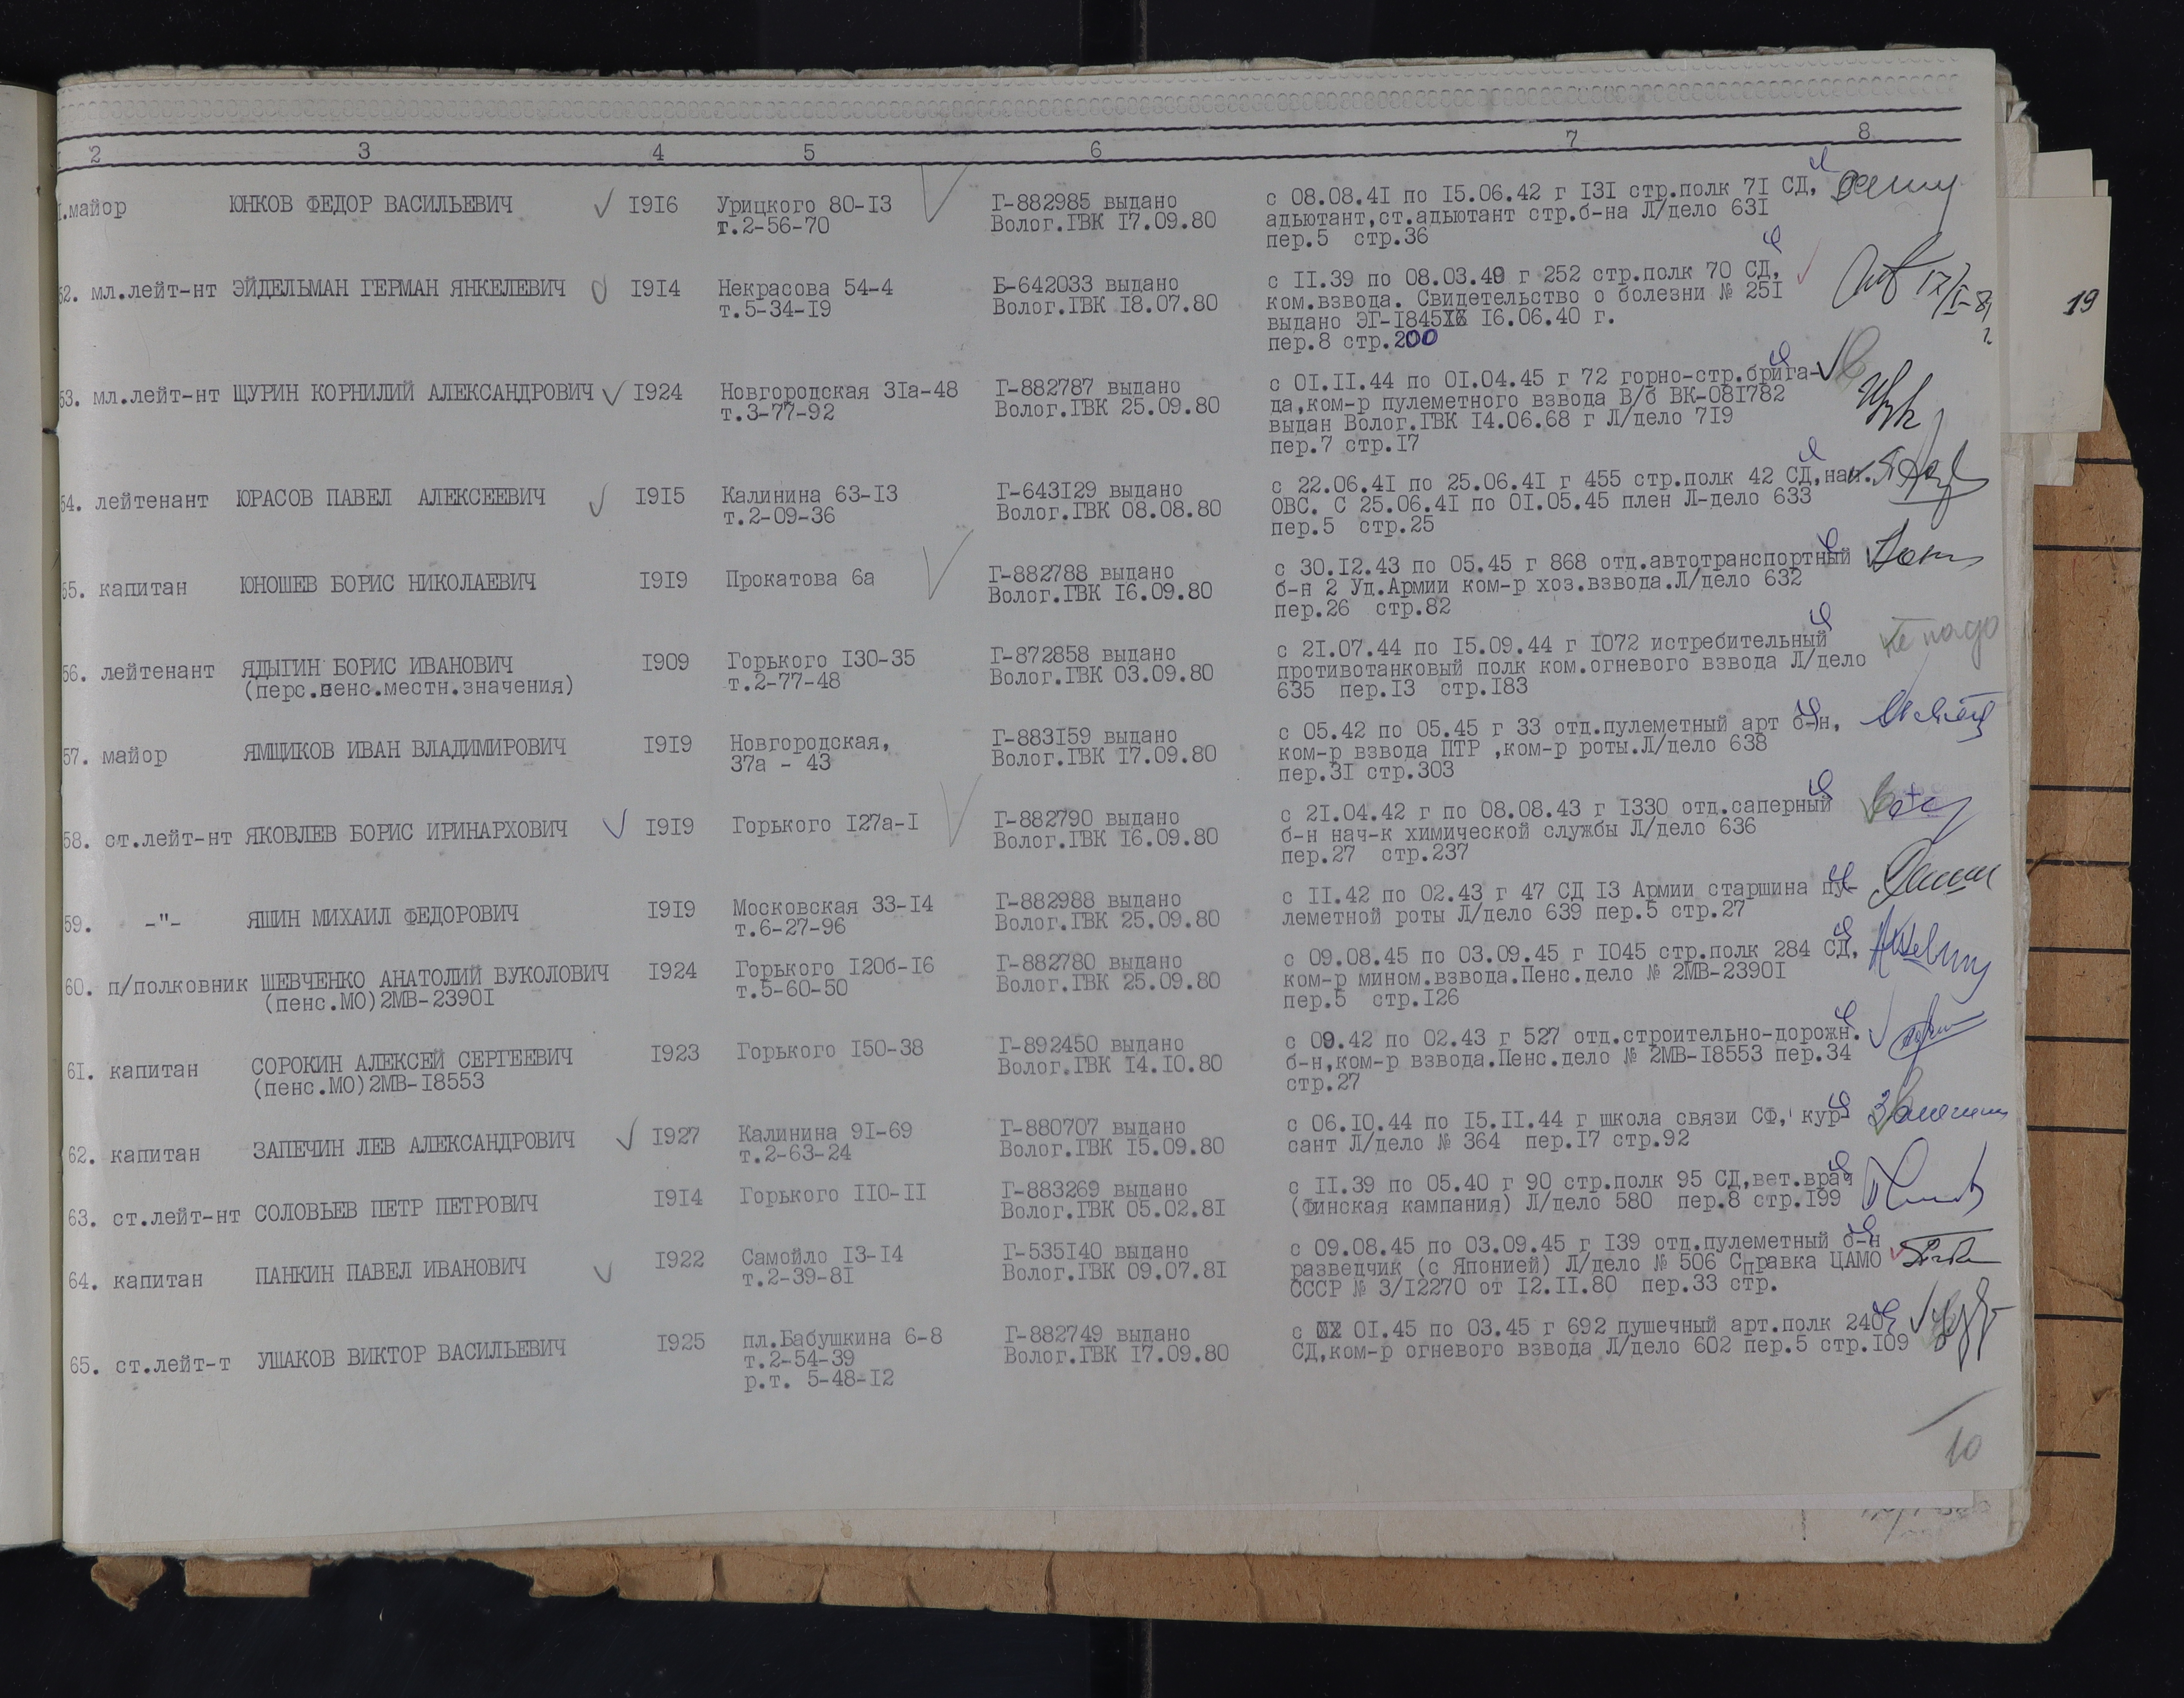 2 3 4 5 6 7 8
1.майор ЮНКОВ ФЕДОР ВАСИЛЬЕВИЧ 1916 Урицкого 80-13 Г-882985 выдано с 08.08.41 по 15.06.42 г 131 стр.полк 71 СД,
т.2-56-70 Волог.ГВК 17.09.80 адьютант,ст.адьютант стр.б-на Л/дело 631
пер.5 стр.36
52. мл.лейт-нт ЭЙДЕЛЬМАН ГЕРМАН ЯНКЕЛЕВИЧ 1914 Некрасова 54-4 Б-642033 выдано с 11.39 по 08.03.40 г 252 стр.полк 70 СД,
т.5-34-19 Волог.ГВК 18.07.80 ком.взвода. Свидетельство о болезни № 251
выдано ЭГ-1845 16.06.40 г.
пер.8 стр.200
19
53. мл.лейт-нт ЩУРИН КОРНИЛИЙ АЛЕКСАНДРОВИЧ 1924 Новгородская 31а-48 Г-882787 выдано с 01.11.44 по 01.04.45 г 72 горно-стр.брига-
т.3-77-92 Волог.ГВК 25.09.80 да,ком-р пулеметного взвода В/б ВК-081782
выдан Волог.ГВК 14.06.68 г Л/дело 719
пер.7 стр.17
54. лейтенант ЮРАСОВ ПАВЕЛ АЛЕКСЕЕВИЧ 1915 Калинина 63-13 Г-643129 выдано с 22.06.41 по 25.06.41 г 455 стр.полк 42 СД,нач.
т.2-09-36 Волог.ГВК 08.08.80 ОВС. С 25.06.41 по 01.05.45 плен Л-дело 633
пер.5 стр.25
55. капитан ЮНОШЕВ БОРИС НИКОЛАЕВИЧ 1919 Прокатова 6а Г-882788 выдано с 30.12.43 по 05.45 г 868 отд.автотранспортный
Волог.ГВК 16.09.80 б-н 2 Уд.Армии ком-р хоз.взвода.Л/дело 632
пер.26 стр.82
56. лейтенант ЯДЫГИН БОРИС ИВАНОВИЧ 1909 Горького 130-35 Г-872858 выдано с 21.07.44 по 15.09.44 г 1072 истребительный не надо
(перс.пенс.местн.значения) т.2-77-48 Волог.ГВК 03.09.80 противотанковый полк ком.огневого взвода Л/дело
635 пер.13 стр.183
57. майор ЯМЩИКОВ ИВАН ВЛАДИМИРОВИЧ 1919 Новгородская, Г-883159 выдано с 05.42 по 05.45 г 33 отд.пулеметный арт б-н,
37а - 43 Волог.ГВК 17.09.80 ком-р взвода ПТР ,ком-р роты.Л/дело 638
пер.31 стр.303
58. ст.лейт-нт ЯКОВЛЕВ БОРИС ИРИНАРХОВИЧ 1919 Горького 127а-1 Г-882790 выдано с 21.04.42 г по 08.08.43 г 1330 отд.саперный
Волог.ГВК 16.09.80 б-н нач-к химической службы Л/дело 636
пер.27 стр.237
59. -"- ЯШИН МИХАИЛ ФЕДОРОВИЧ 1919 Московская 33-14 Г-882988 выдано с 11.42 по 02.43 г 47 СД 13 Армии старшина пу-
т.6-27-96 Волог.ГВК 25.09.80 леметной роты Л/дело 639 пер.5 стр.27
60. п/полковник ШЕВЧЕНКО АНАТОЛИЙ ВУКОЛОВИЧ 1924 Горького 120б-16 Г-882780 выдано с 09.08.45 по 03.09.45 г 1045 стр.полк 284 СД,
(пенс.МО)2МВ-23901 т.5-60-50 Волог.ГВК 25.09.80 ком-р мином.взвода.Пенс.дело № 2МВ-23901
пер.5 стр.126
61. капитан СОРОКИН АЛЕКСЕЙ СЕРГЕЕВИЧ 1923 Горького 150-38 Г-892450 выдано с 09.42 по 02.43 г 527 отд.строительно-дорожн.
(пенс.МО)2МВ-18553 Волог.ГВК 14.10.80 б-н,ком-р взвода.Пенс.дело № 2МВ-18553 пер.34
стр.27
62. капитан ЗАПЕЧИН ЛЕВ АЛЕКСАНДРОВИЧ 1927 Калинина 91-69 Г-880707 выдано с 06.10.44 по 15.11.44 г школа связи СФ, кур-
т.2-63-24 Волог.ГВК 15.09.80 сант Л/дело № 364 пер.17 стр.92
63. ст.лейт-нт СОЛОВЬЕВ ПЕТР ПЕТРОВИЧ 1914 Горького 110-11 Г-883269 выдано с 11.39 по 05.40 г 90 стр.полк 95 СД,вет.врач
Волог.ГВК 05.02.81 (Финская кампания) Л/дело 580 пер.8 стр.199
64. капитан ПАНКИН ПАВЕЛ ИВАНОВИЧ 1922 Самойло 13-14 Г-535140 выдано с 09.08.45 по 03.09.45 г 139 отд.пулеметный б-н
т.2-39-81 Волог.ГВК 09.07.81 разведчик (с Японией) Л/дело № 506 Справка ЦАМО
СССР № 3/12270 от 12.11.80 пер.33 стр.
65. ст.лейт-т УШАКОВ ВИКТОР ВАСИЛЬЕВИЧ 1925 пл.Бабушкина 6-8 Г-882749 выдано с 01.45 по 03.45 г 692 пушечный арт.полк 240
т.2-54-39 Волог.ГВК 17.09.80 СД,ком-р огневого взвода Л/дело 602 пер.5 стр.109
р.т. 5-48-12
10